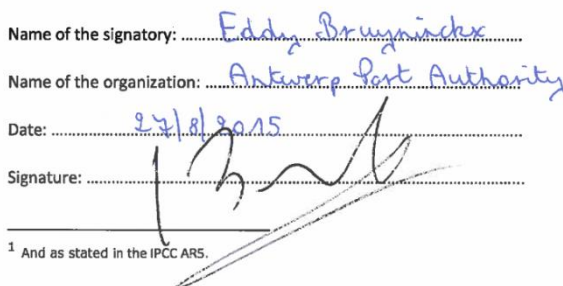 Name of the signatory: Eddy Bruyninckx
Name of the organization: Antwerp Port Authority
Date: 27/8/2015
Signature:
1 And as stated in the IPCC AR5.